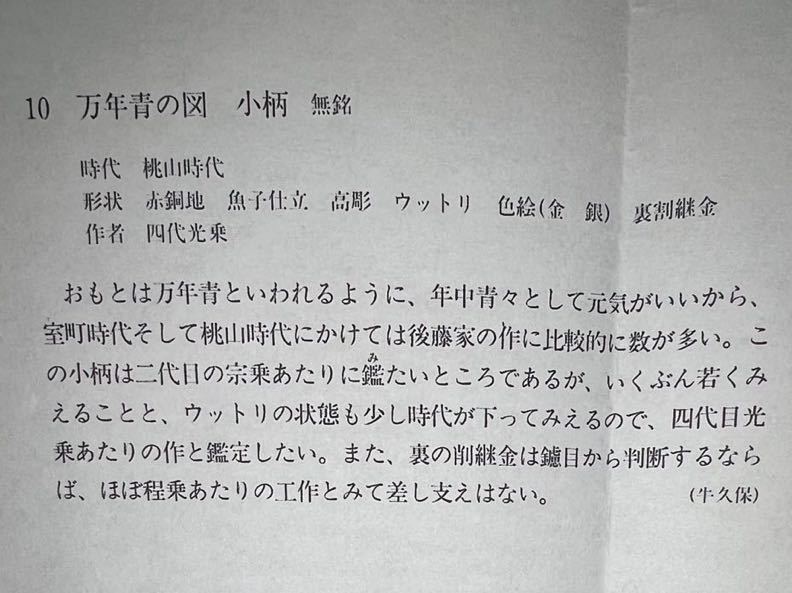 10 万年青の図 小柄 無銘
時代 桃山時代
形状 赤銅地 魚子仕立 高彫 ウットリ 色絵(金 銀) 裏割継金
作者 四代光乗
おもとは万年青といわれるように、年中青々として元気がいいから、
室町時代そして桃山時代にかけては後藤家の作に比較的に数が多い。こ
の小柄は二代目の宗乗あたりに鑑たいところであるが、いくぶん若くみ
えることと、ウットリの状態も少し時代が下ってみえるので、四代目光
乗あたりの作と鑑定したい。また、裏の削継金は鑢目から判断するなら
ば、ほぼ程乗あたりの工作とみて差し支えはない。 (牛久保)